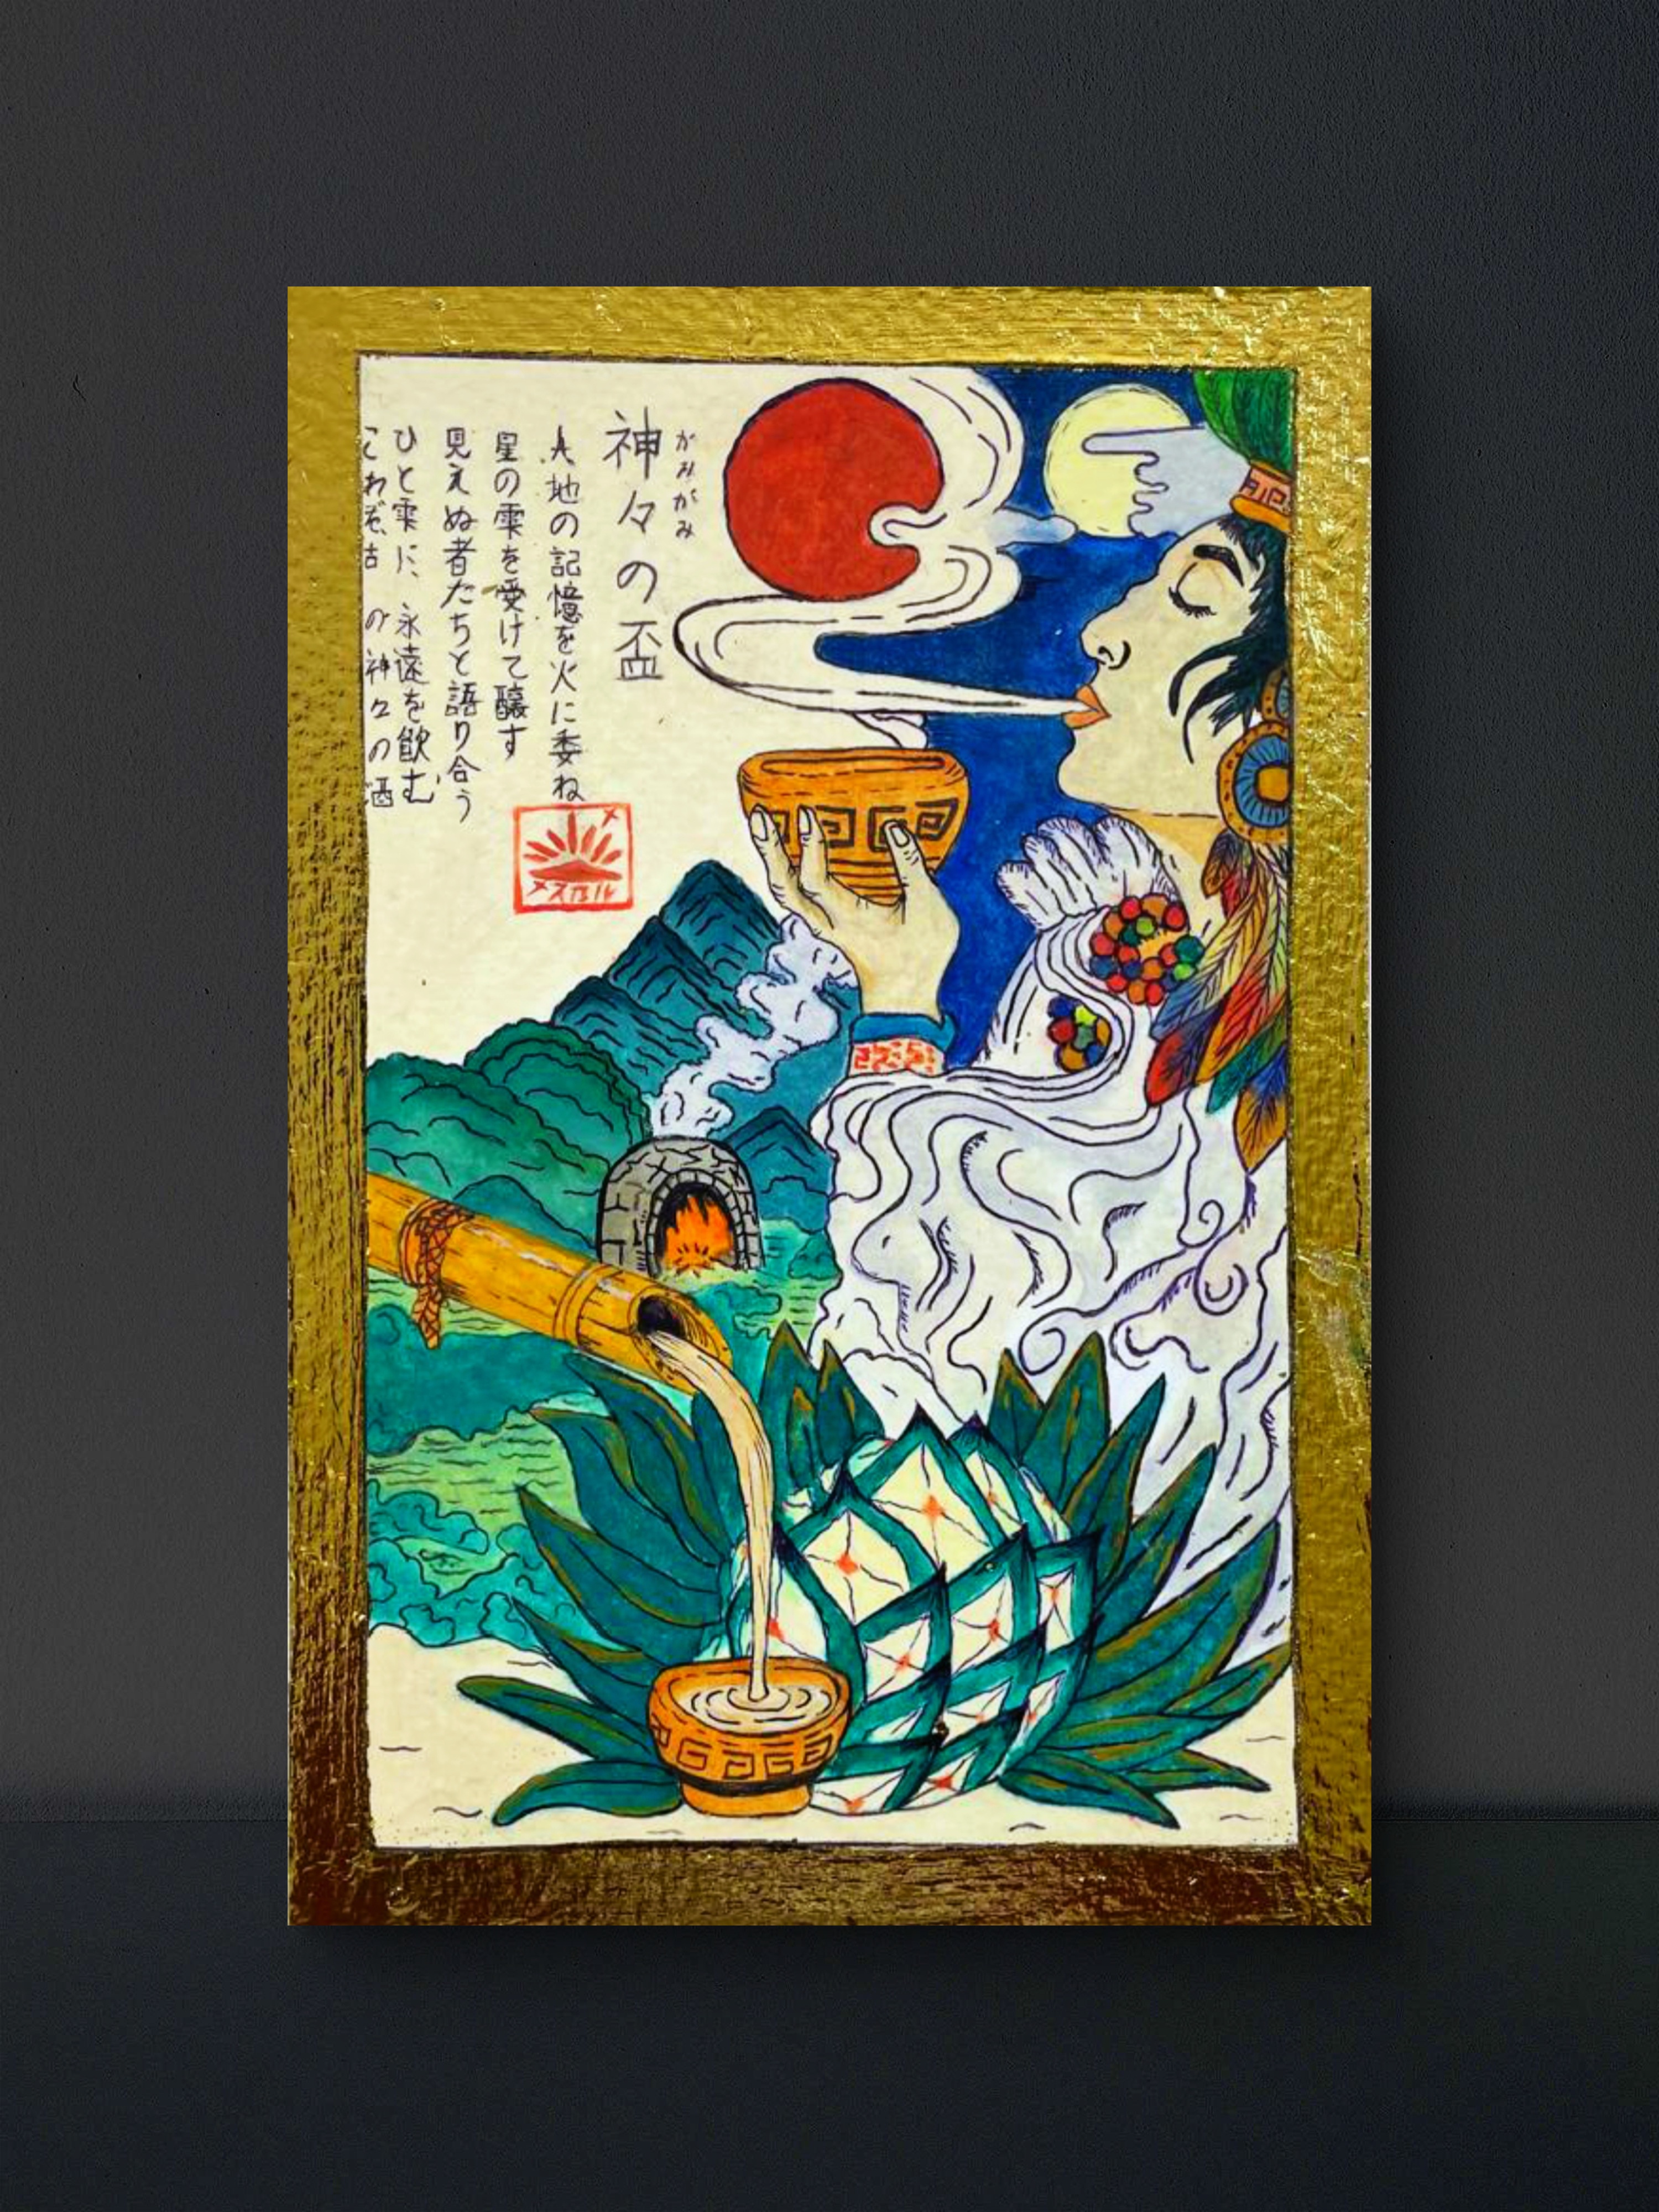 かみがみ
神々の盃
大地の記憶を火に委ね
星の雫を受けて醸す
見えぬ者たちと語り合う
ひと雫に、永遠を飲む
これぞ古の神々の酒
メスカル